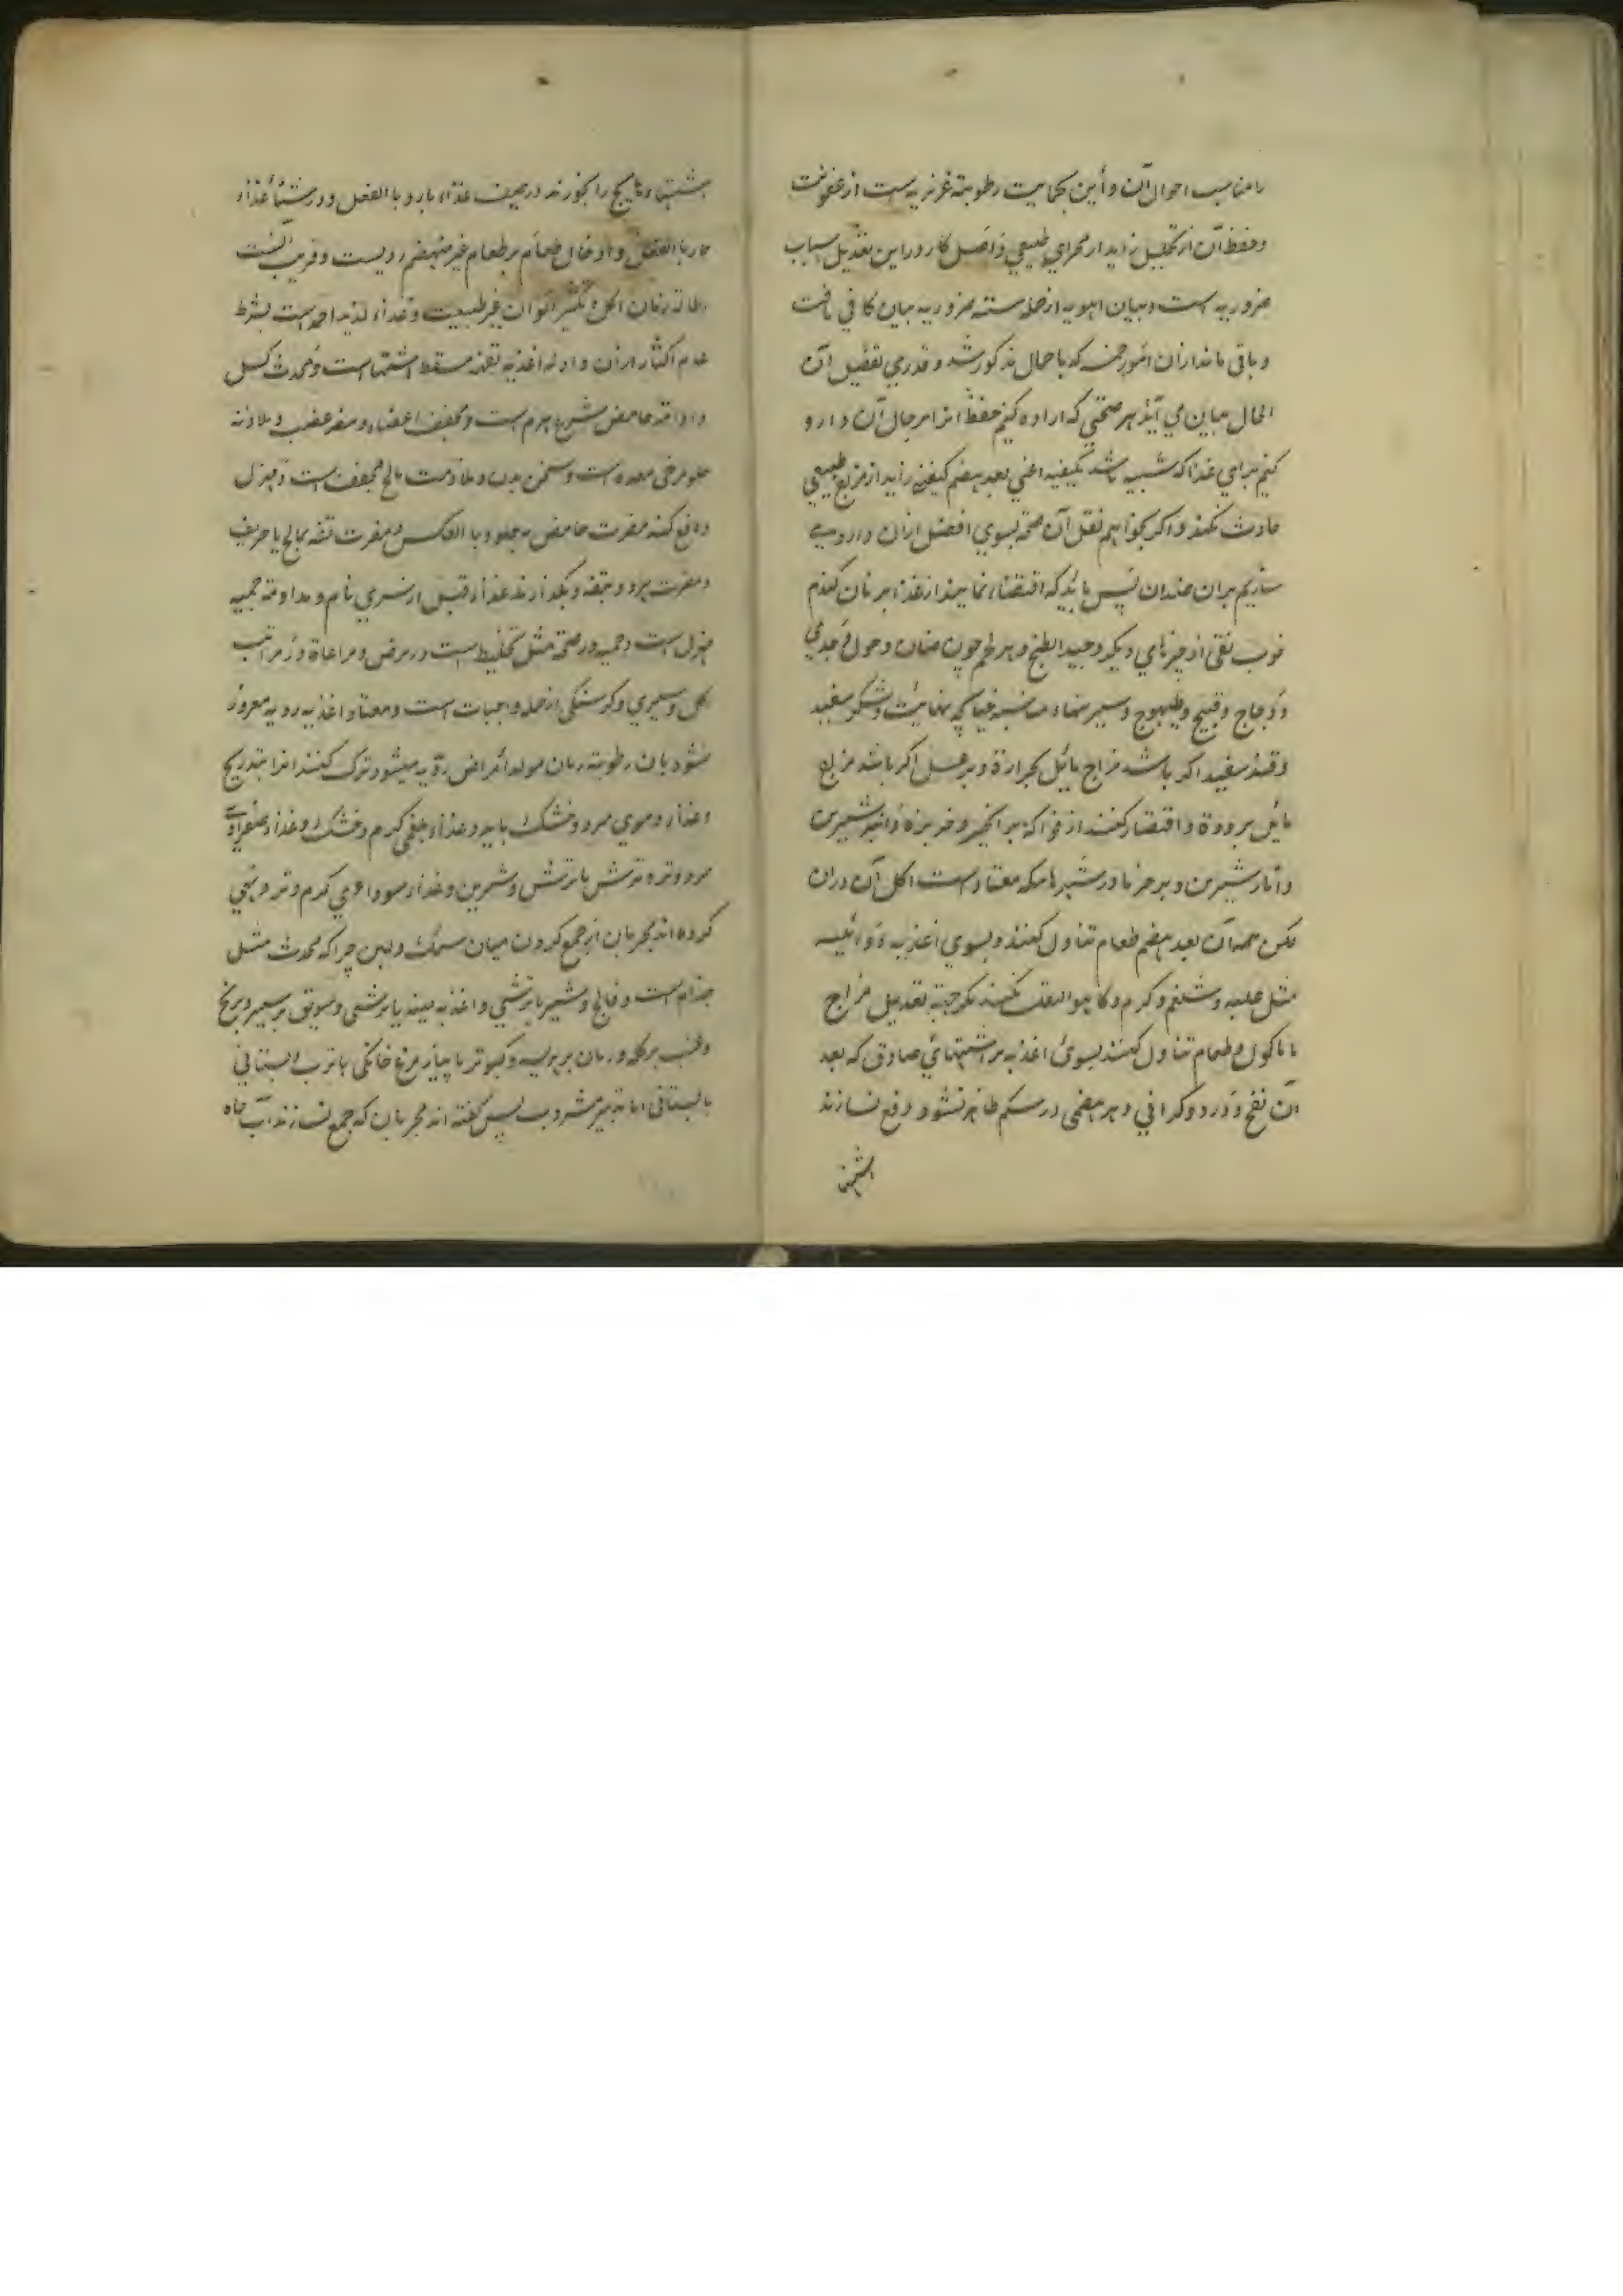 را مناسب احوال آن و أین بحمایت رطوبته غریزیه است از عفونت
و حفظ آن از تحلیل زاید از مجرای طبیعی و اصل کار در این تعدیل اسباب
ضروریه است و بیان اهویه از جمله سته ضروریه بیان کافی یافت
و باقی ماند ازان امور خمسه که باحمال مذکور شد و قدری تفصیل آن
الحال بیان می آید هر صحتی که اراده کنیم حفظ انرا بر حال آن دارو
کنیم برای غذا که شبیه باشد بکیفیه اعنی بعد هضم کیفیة زاید از مزاج طبیعی
حادث نکند و اگر بخواهیم نقل آن صحة بسوی افضل ازان وارد
سازیم بران ضد آن پس باید که اقتصار نمایند از غذا بر نان گندم
خوب نقی از چیزهای دیگر و جید الطبخ و بر لحم چون ضان و حولی جدی
و دجاج و قبج و طیهوج و شکر سفید
و قند سفید اگر باشد مزاج مائل بحرارة و بر عسل اگر باشد مزاج
مائل ببرودة و اقتصار کنند از فواکه بر انجیر و خربزه و انبه شیرین
و انار شیرین و بر خرما در شهرهاییکه معتاد است اکل آن دران
لیکن همه آن بعد هضم طعام تناول کنند و بسوی اغذیه دوائیه
مثل حلبه و شلغم و کرم و کاهو التفات نکنند مگر جهة تعدیل مزاج
یا ماکول و طعام تناول کنند بسوی اغذیه بر اشتهائی صادق که بعد
آن نفخ و درد و گرانی و بدهضمی در شکم ظاهر نشود و دفع نسازند
اشتها
اشتهاء هایج را بخورند در صیف غذاء بارد با الفعل و در شتاء غذاء
حار با الفعل و ادخال طعام بر طعام غیر منهضم ردیست و قریب آنست
اطالة زمان اکل و تکثیر الوان غیر طبیعت و غذاء لذیذ احمد است بشرط
عدم اکثار ازان و ادامه اغذیه تفهه مسقط اشتها است و محدث کسل
و ادامة حامض مسرع هرم است و مجفف اعضاء و مضر عصب و ملازمة
حلو مرخی معده است و مسخن بدن و ملازمت مالح مجفف است و مهزل
دافع کند مضرت حامض به حلو و با العکس و مضرت تفه بمالح یا حریف
و مضرت هر دو بتفه و بگذارند غذا را قبل از سیری تام و مداومة حمیه
مهزل است و حمیه در صحة مثل تخلیط است در مرض و مراعاة در مراتب
اکل و سیری و گرسنگی از جمله واجبات است و معتاد اغذیه ردیه مغرور
نشود بان رطوبته زمان مولد امراض ردیه میشود ترک کنند انرا بتدریج
و غذاء دموی سرد و خشک باید و غذاء بلغمی گرم و خشک و غذاء صفراوی
سرد و تر و ترش یا ترش و شیرین و غذاء سوداوی گرم و تر و نهی
کرده اند مجربان از جمع کردن میان سمک و لبن چرا که محدث مثل
جذام است و فالج و شیر با ترشی و اغذیه سفید با ترشی و سویق بر شیر برنج
و عنب بر کله و رمان بر هریسه و کبوتر با پیاز مرغ خانگی با ترب البستانی
بالبستانی اما تدبیر مشروب پس گفته اند مجربان که جمع نسازند آب چاه